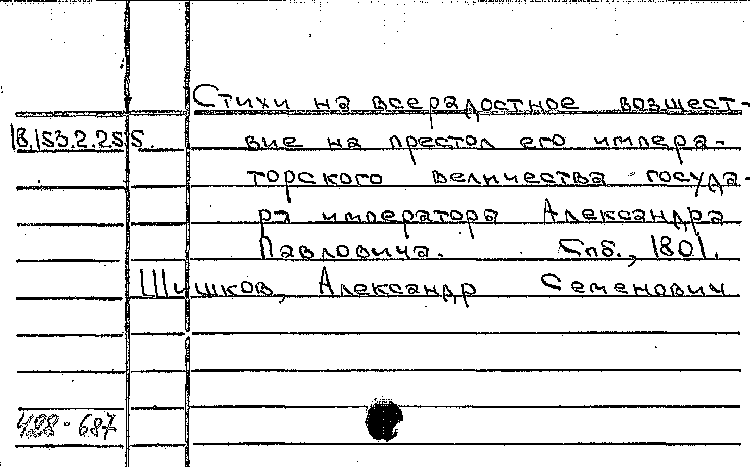 Стихи на всерадостное возшест-
18.153.2.255. вие на престол его импера-
торского величества госуда-
ря императора Александра
Павловича. Спб., 1801.
Шишков, Александр Семенович
488-687